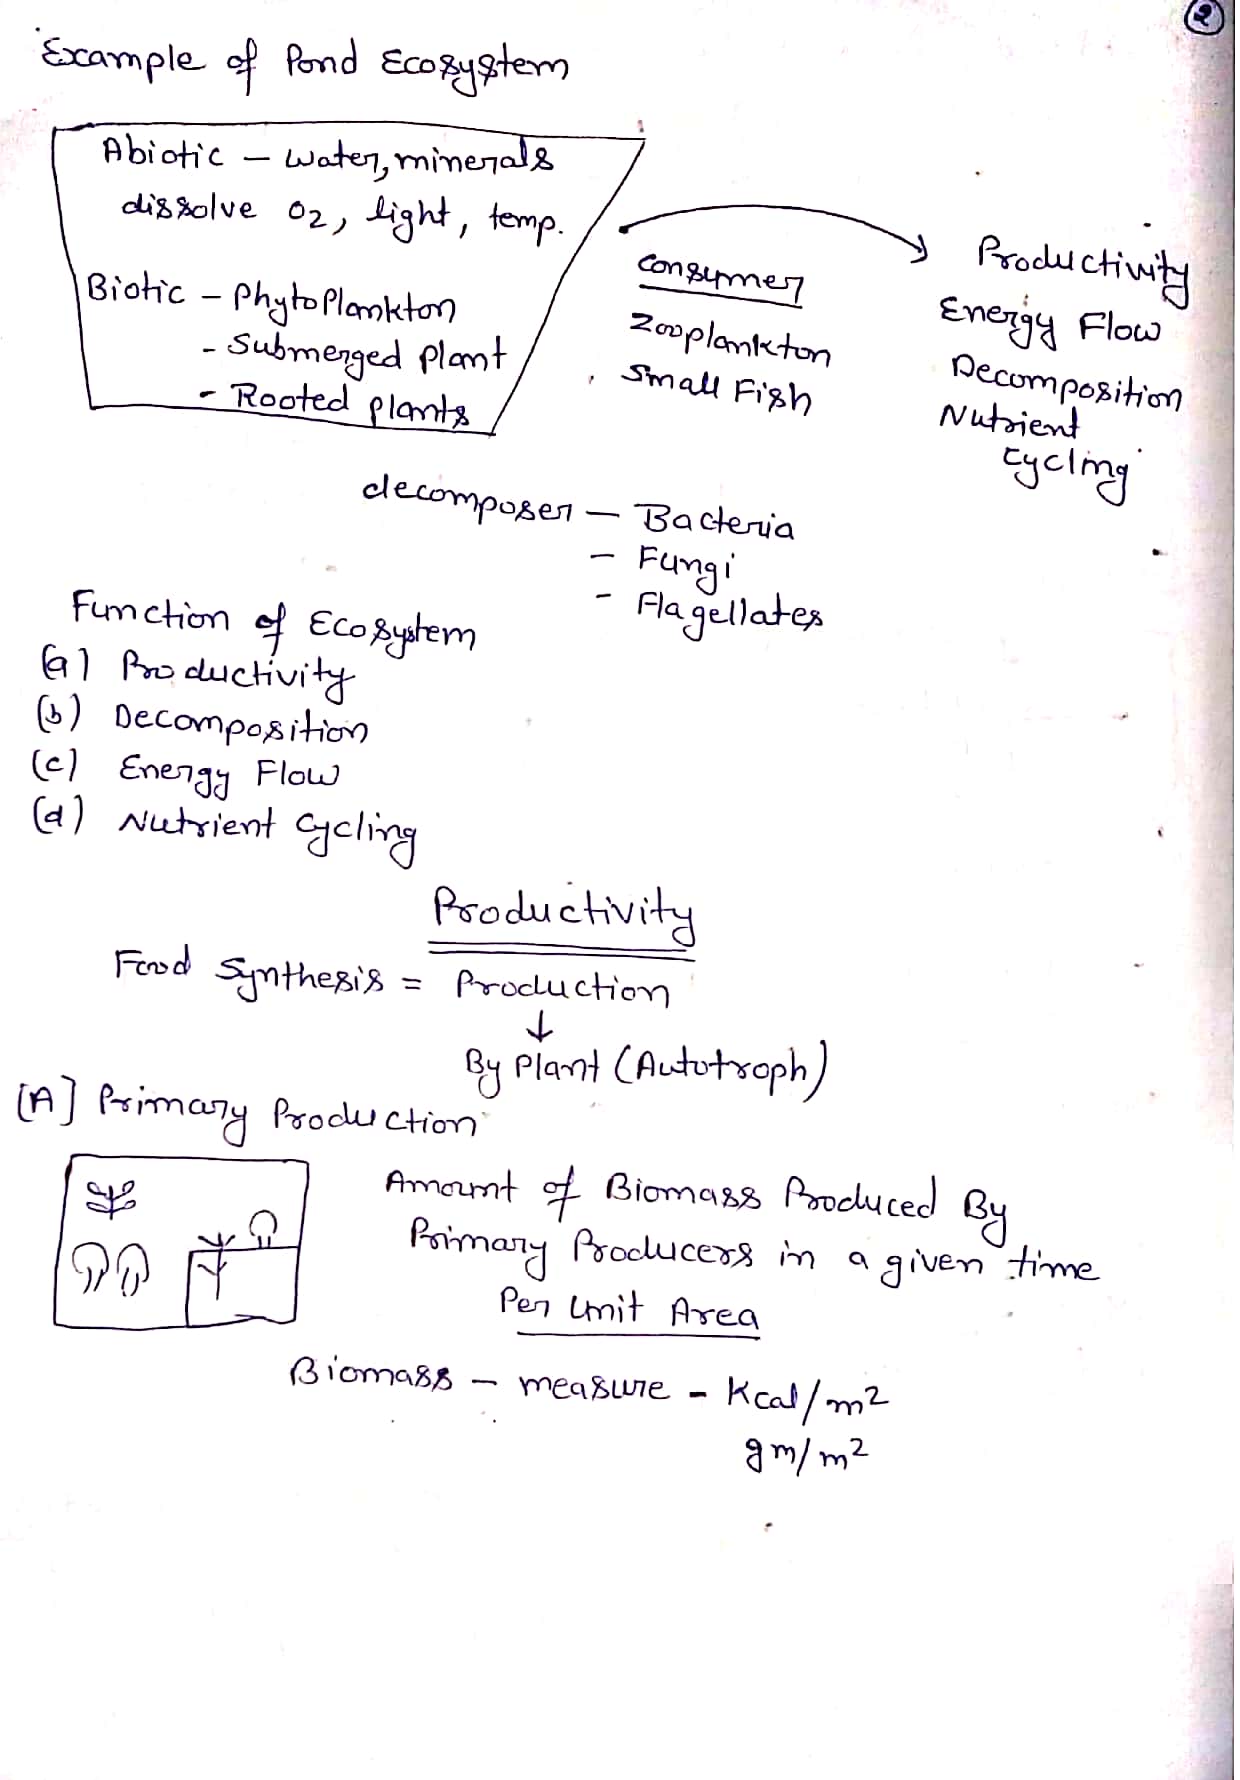 2
Example of Pond Ecosystem
Abiotic – water, minerals
dissolve O2, light, temp.
Biotic – Phytoplankton
- Submerged plant
- Rooted plants
consumer
Zooplankton
Small Fish
Productivity
Energy Flow
Decomposition
Nutrient
Cycling
decomposer – Bacteria
– Fungi
- Flagellates
Function of Ecosystem
(a) Productivity
(b) Decomposition
(c) Energy Flow
(d) Nutrient Cycling
Productivity
Food Synthesis = Production
↓
By Plant (Autotroph)
[A] Primary Production
Amount of Biomass Produced By
Primary Producers in a given time
Per Unit Area
Biomass – measure – Kcal/m2
gm/m2